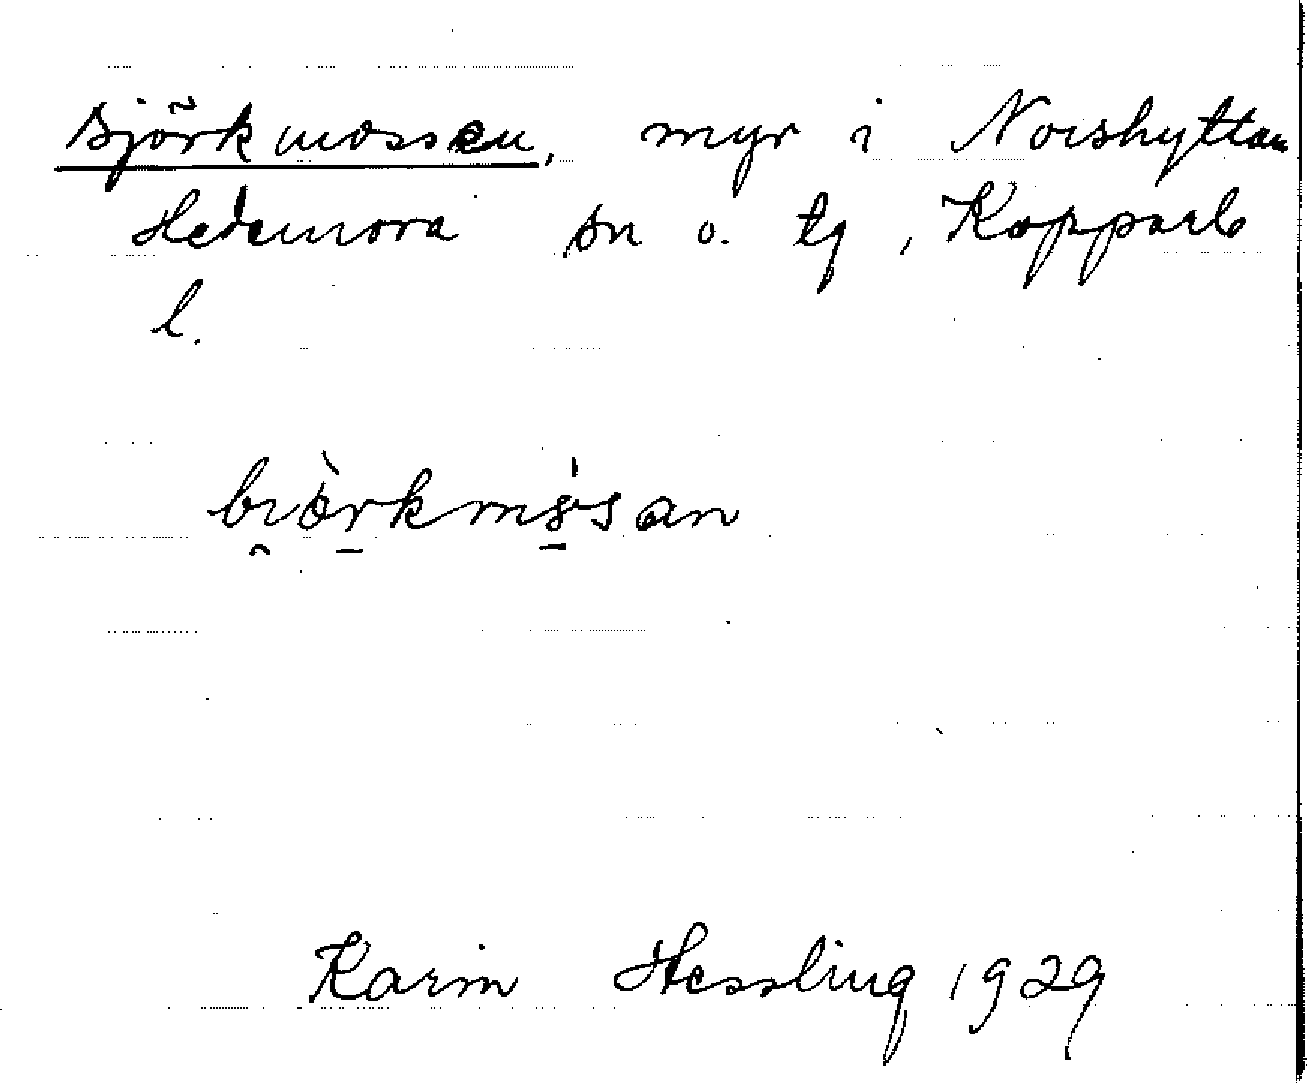 Björkmossen, myr i Norshyttan
Hedemora sn o. tg, Kopparb
l.
Karin Hessling 1929